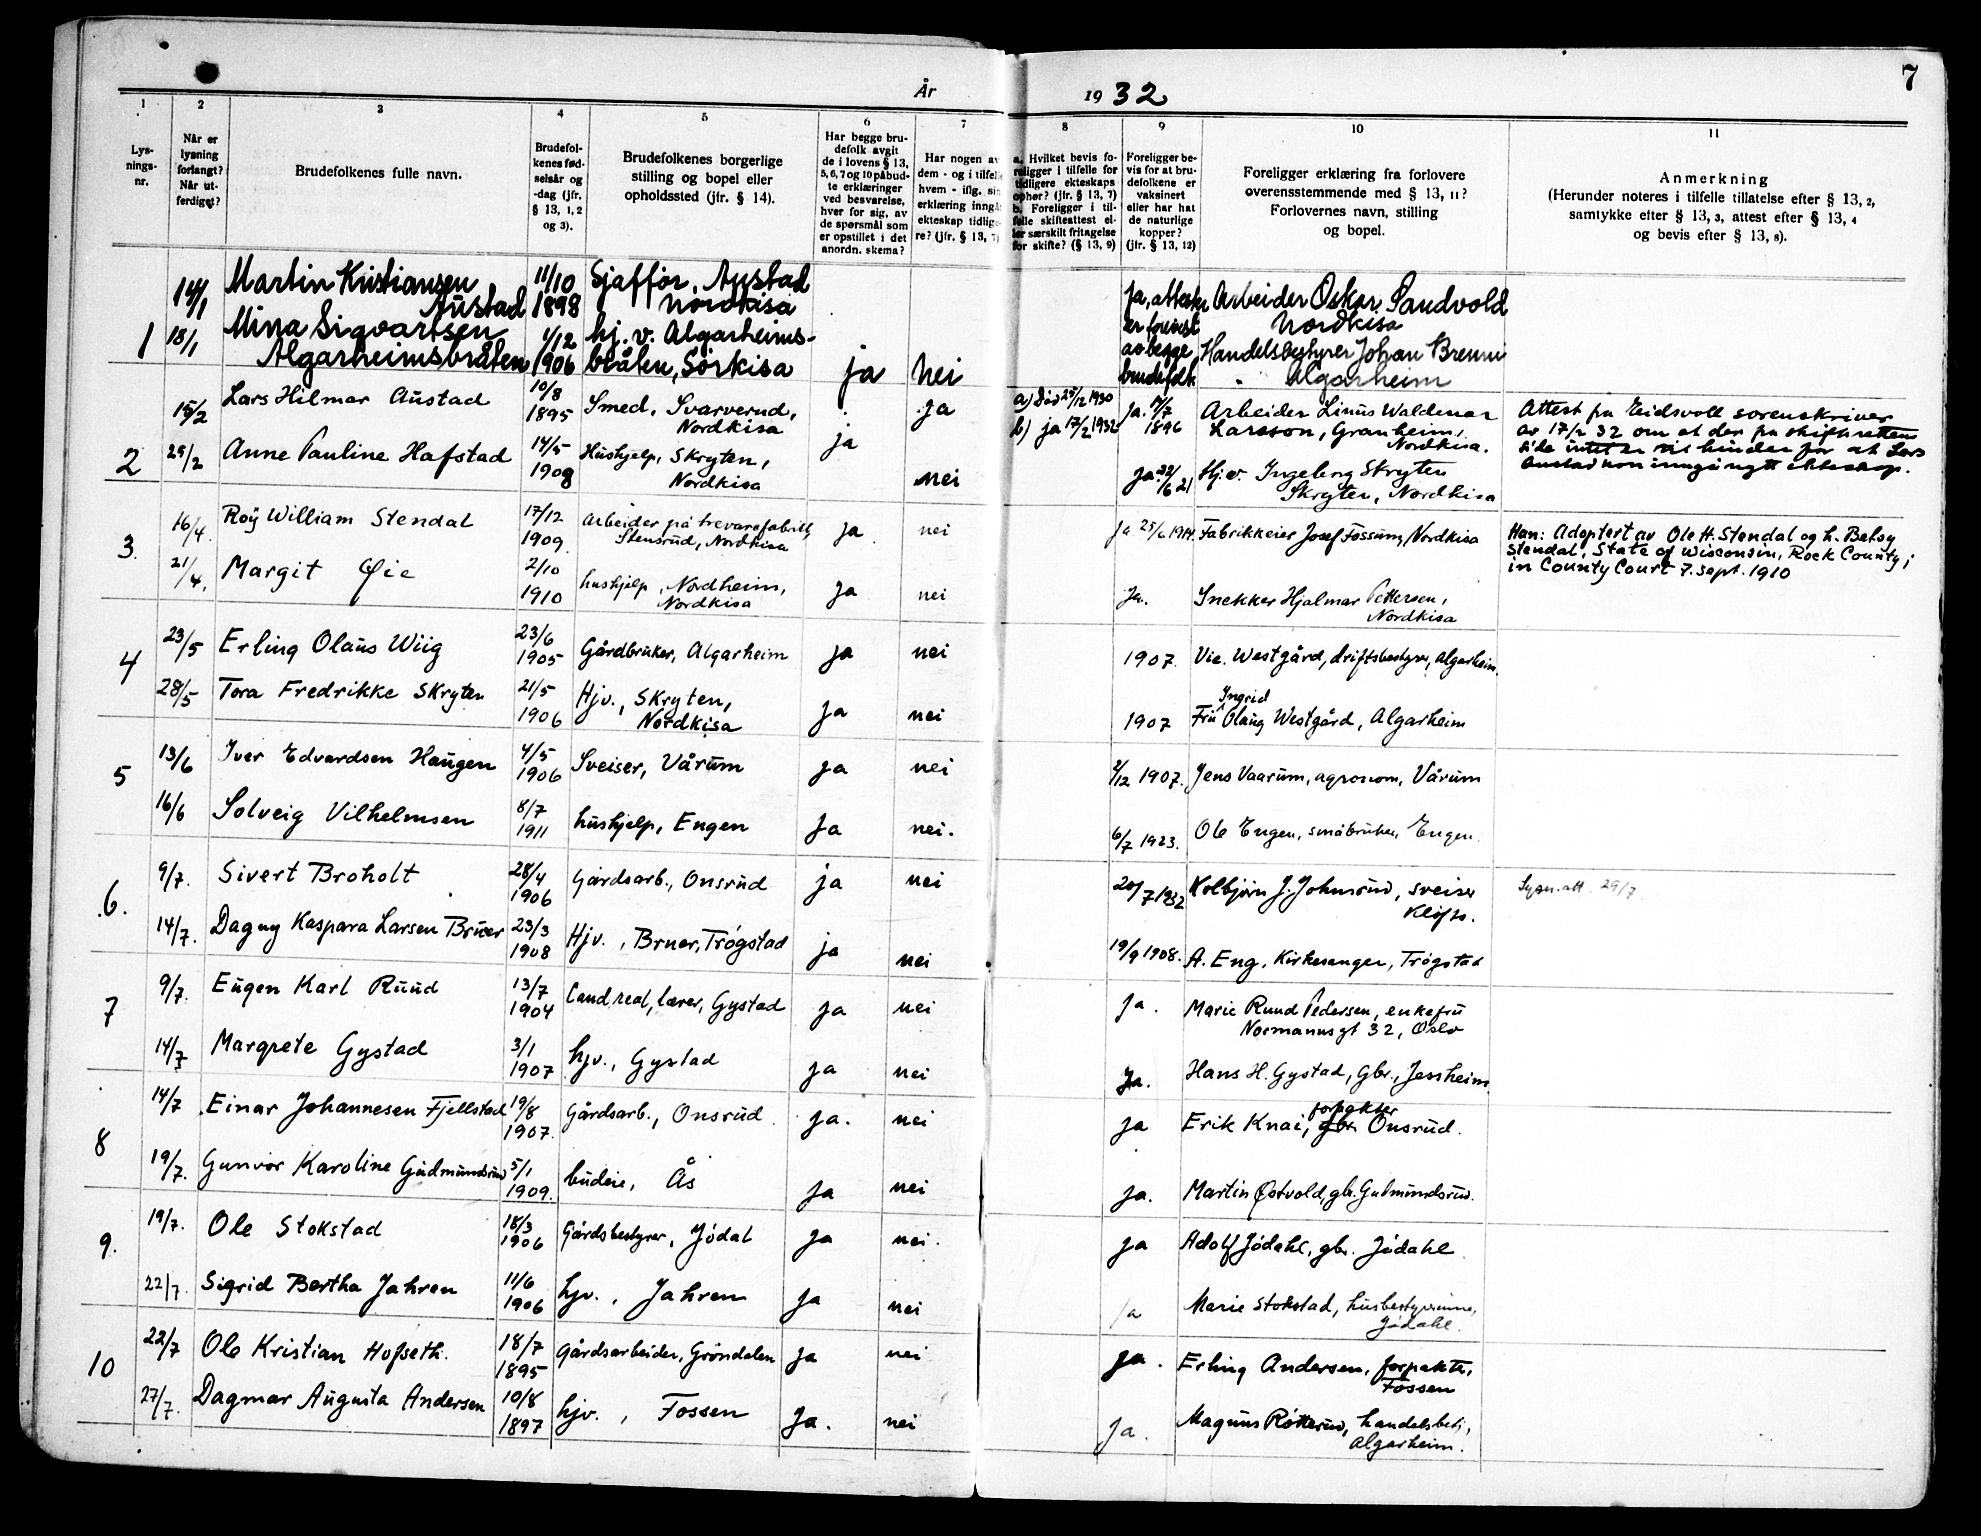 7
År 1932
1 2 3 4 5 6 7 8 9 10 11
Lys-
nings-
nr.
Når er
lysning
forlangt?
Når ut-
ferdiget?
Brudefolkenes fulle navn.
Brudefol-
kenes fød-
selsår og
-dag (jfr.
§ 13, 1, 2
og 3).
Brudefolkenes borgerlige
stilling og bopel eller
opholdssted (jfr. § 14).
Har begge bru-
defolk avgit
de i lovens § 13,
5, 6, 7 og 10 påbud-
te erklæringer
ved besvarelse,
hver for sig, av
de spørsmål som
er opstillet i det
anordn. skema?
Har nogen av
dem - og i tilfelle
hvem - iflg. sin
erklæring inngå
ekteskap tidlige-
re? (jfr. § 13, 7)
a. Hvilket bevis fo-
religger i tilfelle for
tidligere ekteskaps
ophør? (jfr. § 13, 7)
b. Foreligger i til-
felle skifteattest el-
ler særskilt fritagelse
for skifte? (§ 13, 9)
Foreligger be-
vis for at bru-
defolkene er
vaksinert
eller har hat
de naturlige
kopper?
(jfr. § 13, 12)
Foreligger erklæring fra forlovere
overensstemmende med § 13, 11?
Forlovernes navn, stilling
og bopel.
Anmerkning
(Herunder noteres i tilfelle tillatelse efter § 13, 2,
samtykke efter § 13, 3, attest efter § 13, 4
og bevis efter § 13, 8).
1
14/1 Martin Kristiansen Austad 11/10 1898 Sjåffør, Austad Nordkisa
18/1 Mina Sigvartsen Algarheimsbråten 1/12 1906 hj. v. Algarheims-
bråten, Sørkisa ja nei
Ja, attester er forevist av begge brudefolk
Arbeider Oskar Sandvold
Nordkisa
Handelsbestyrer Johan Brenni
Algarheim
2
15/2 Lars Hilmar Austad 10/8 1895 Smed, Svarverud, Nordkisa ja ja
a) Død 25/12 1930
b) ja 17/2 1932
Ja. 1896 Arbeider Linus Waldemar
Larsson, Granheim, Nordkisa.
Attest fra Eidsvoll sorenskriver
av 17/2 32 om at der fra skifteretten
side intet er til hinder for at Lars
Austad kan inngå nytt ekteskap.
29/2 Anne Pauline Hafstad 14/5 1908 Hushjelp, Skryten, Nordkisa nei
Ja 22/6 21 Hj.v. Ingeborg Skryten
Skryten, Nordkisa
3.
16/4. Roy William Stendal 17/12 1909 Arbeider på trevarefabrikk
Stensrud, Nordkisa ja nei
Ja 25/6 1914. Fabrikkeier Josef Fossum, Nordkisa
Han: Adoptert av Ole H. Stendal og h. Betsy
Stendal, State of Wisconsin, Rock County;
in County Court 7. sept. 1910
21/4. Margit Øie 2/10 1910 hushjelp, Nordheim, Nordkisa ja nei
Ja. Snekker Hjalmar Pettersen, Nordkisa
4
23/5 Erling Olaus Wiig 23/6 1905 Gårdbruker, Algarheim ja nei
1907. Vie. Westgård, driftsbestyrer, Algarheim.
28/5 Tora Fredrikke Skryten 21/5 1906 Hjv., Skryten, Nordkisa ja nei
1907 Fru Ingrid Olaug Westgård, Algarheim
5
13/6 Iver Edvardsen Haugen 4/5 1906 Sveiser, Vårum ja nei
2/12 1907. Jens Vaarum, agronom, Vårum
16/6 Solveig Vilhelmsen 8/7 1911 hushjelp, Engen ja nei.
6/7 1923. Ole Engen, småbruker, Engen.
6.
9/7. Sivert Broholt 28/4 1906 Gårdsarb., Onsrud ja nei
20/7 1932 Kolbjørn J. Johnsrud, sveiser Kløfta.
29/7
14/7. Dagny Kaspara Larsen Bruer 23/3 1908 Hjv., Bruer, Trøgstad ja nei
19/9 1908. A. Eng, Kirkesanger, Trøgstad
7
9/7. Eugen Karl Ruud 13/7 1904 Cand real, lærer, Gystad ja nei
ja. Marie Ruud Pedersen, enkefru
Normannsgt 32, Oslo
14/7 Margrete Gystad 3/1 1907 hjv., Gystad ja nei
Ja. Hans H. Gystad, gbr., Jessheim
8
14/7 Einar Johannesen Fjellstad 19/8 1907. Gårdsarb., Onsrud ja. nei
ja Erik Knai, gbr. forpakter Onsrud.
19/7. Gunvor Karoline Gudmundsrud 5/1 1909. budeie, Ås ja nei
ja. Martin Østvold, gbr. Gudmundsrud.
9.
19/7. Ole Stokstad 18/3 1906 Gårdsbestyrer, Jødal ja nei.
ja Adolf Jødahl, gbr. Jødahl
22/7. Sigrid Bertha Jahren 11/6 1906 hjv., Jahren ja nei
ja Marie Stokstad, husbestyrerinne, Jødahl.
10
22/7 Ole Kristian Hofseth. 18/7 1895 Gårdsarbeider, Grøndalen ja nei
ja. Erling Andersen, forpakter, Fossen
27/7. Dagmar Augusta Andersen 10/8 1897 hjv., Fossen ja. nei
Ja. Magnus Røtterud, handelsbest., Algarheim.